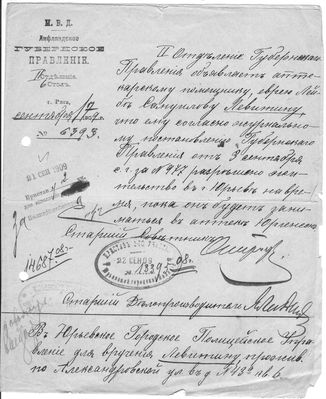 М. В. Д.
Лифляндское
ГУБЕРНСКОЕ
ПРАВЛЕНІЕ.
II Отдѣленіе
6 Столъ.
г. Рига,
сентября 17 дня 190 г.
№ 6393
II Отдѣленіе Губернскаго
Правленія объявляетъ апте-
карскому помощнику, еврею Лей-
бѣ Левитину,
что ему согласно журнальному
постановленію Губернскаго
Правленія отъ 3 сентября
с. г. за № 977 разрѣшено жи-
тельство въ г. Юрьевѣ на вре-
мя, пока онъ будетъ зани-
маться въ аптекѣ
Старшій Совѣтникъ
21 СЕН 1909
22 СЕН09
14687.08.
13391 08.
Старшій Дѣлопроизводитель
Въ Юрьевское Городское Полицейское Упра-
вленіе для врученія Левитину, прожив.
по Александровской ул. въ д. № 43 кв. 6.